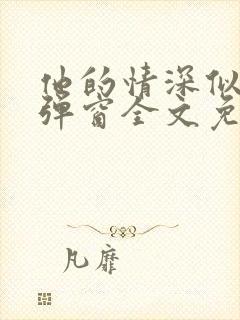 他的情深似
弹窗全文免
凡靡